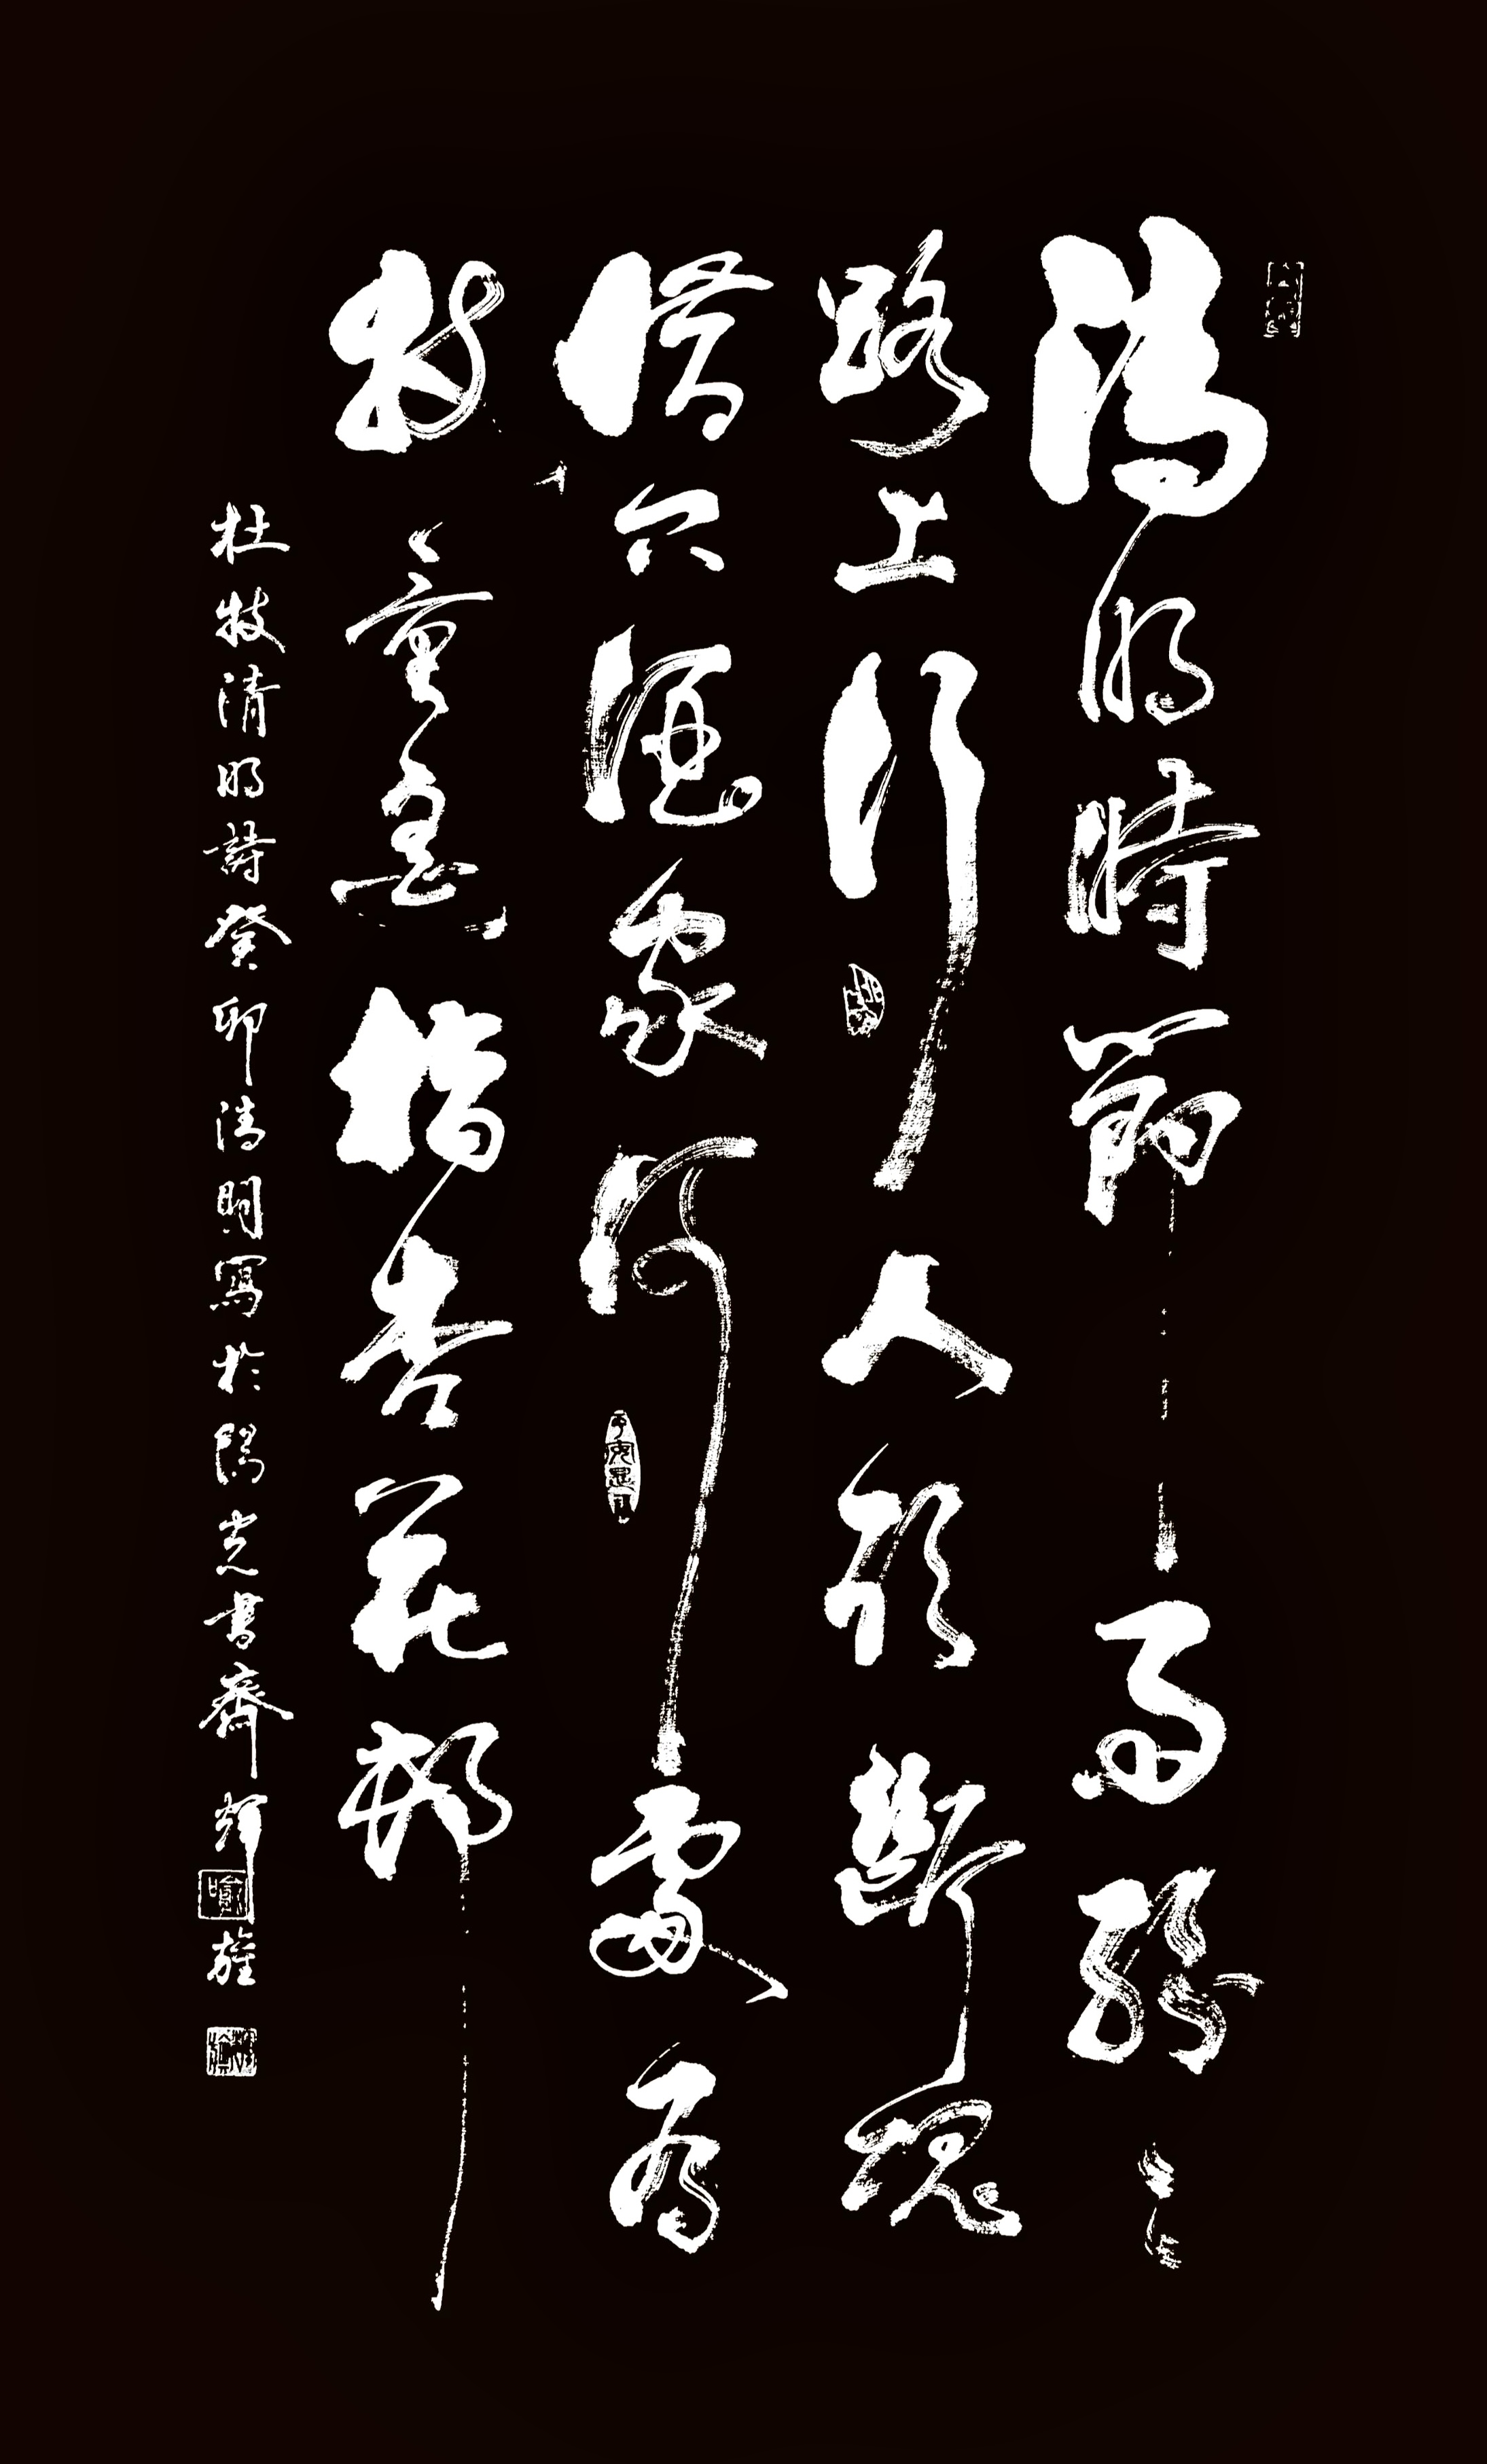 清明時節雨紛〻
路上行人欲斷魂
借問酒家何處有
牧童遙指杏花邨
杜牧清明詩癸卯清朙寫於陽光書齋輝